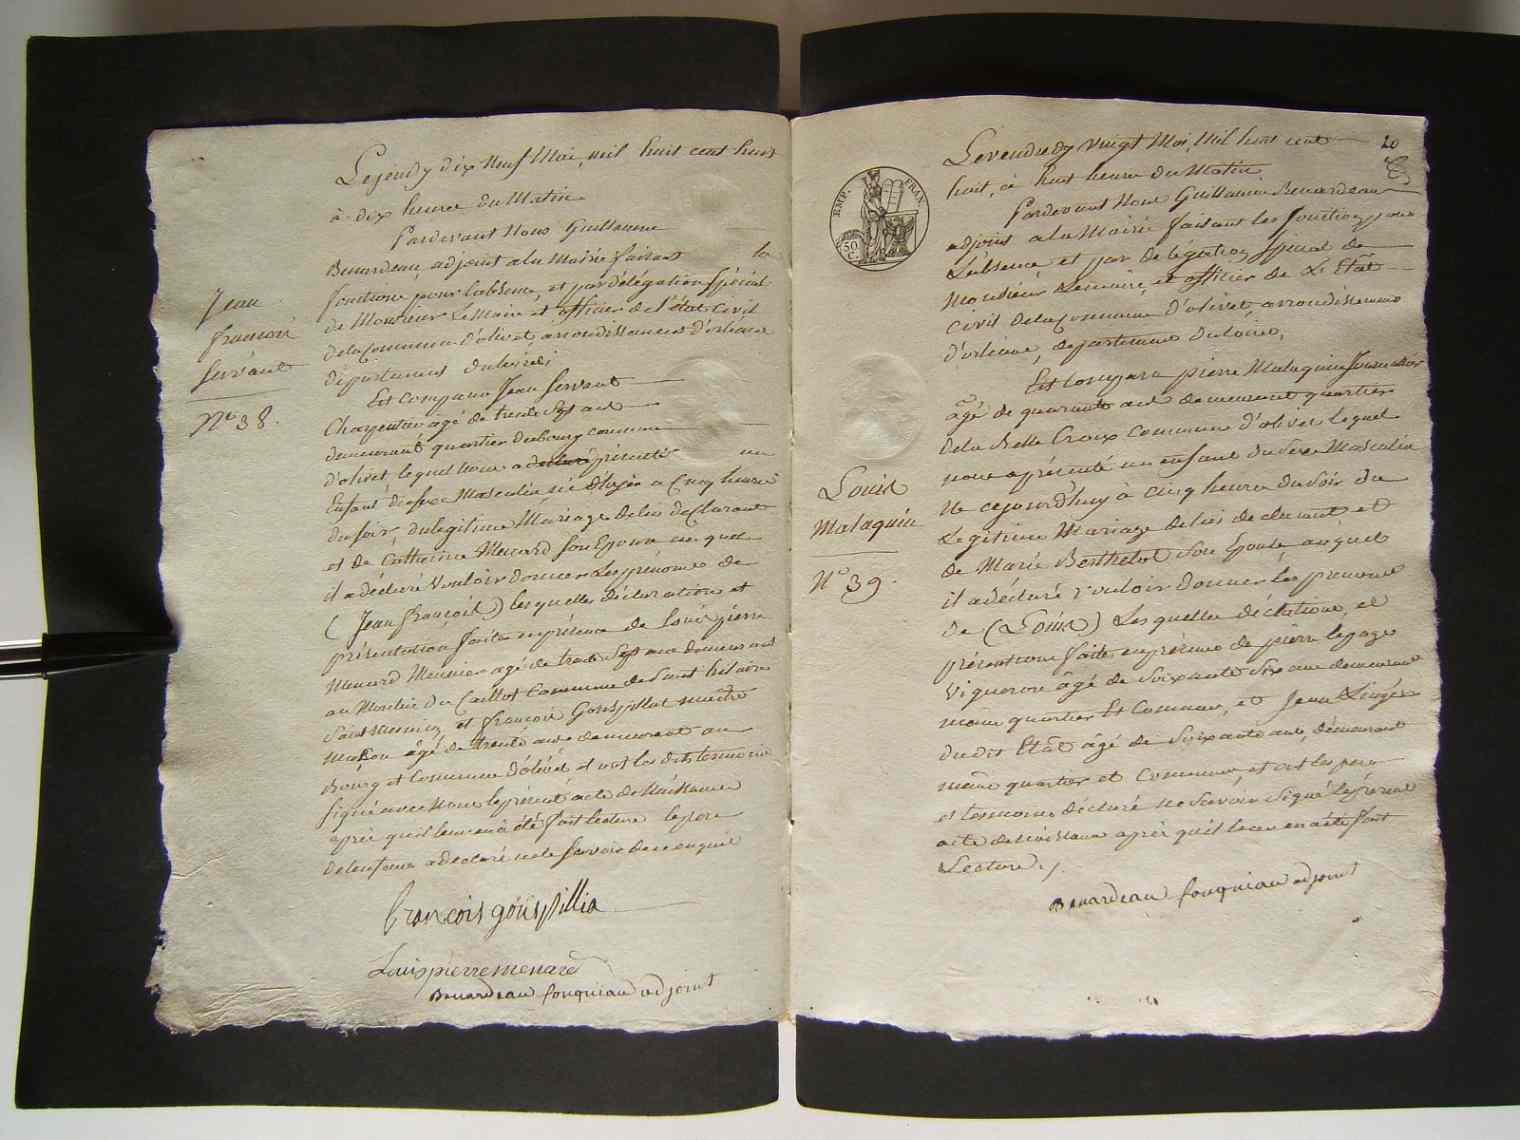 Le jeudy dix Neuf Mai, mil huit cent huit
à dix heure du Matin
Pardevant Nous Guillaume
Benardeau, adjoint a la Mairie faisant les
fonctions pour labsence, et par délégation spécial
de Monsieur Le Maire et officier de l'état Civil
de la Commune d'olivet, arrondissement d'orléans
département du loiret;
Jean
francois
Servant
N° 38.
Est Comparu Jean Servant
Charpentier âgé de trente sept ans
demeurant quartier du bourg commune
d'olivet, lequel nous a declaré présenté un
Enfant du sexe Masculin né d'hyer a Cinq heure
du soir, du legitime Mariage de lui declarant
et de Catherine Menard son Epouse auquel
il a déclaré Vouloir donner Les prénoms de
(Jean francois) lesquelles déclaration et
présentation faite en présence de Louis pierre
Menard Meunier agé de trente Sept ans demeurant
au Moulin du Caillot Commune de Saint hilaire
Saint Mesmin, et francois Gouspillat maître
maçon âgé de trente ans demeurant au
Bourg et Commune d'olivet et ont les dits temoins
signé avec Nous le présent acte de Naissance
après qu'il leur en à été fait lecture le père
de lenfant a declaré ne le Savoir de ce enquis
francois gouspillia
Louis pierre menard
Benardeau fouquiau adjoint
20
EMP. FRAN.
50 C.
Le vendredy vingt Mai, Mil huit cent
huit, à huit heure du Matin,
Pardevant Nous Guillaume Benardeau
adjoint a la Mairie faisant les fonctions pour
L'absence et par délégation spécial de
Monsieur Le maire, et officier de L'Etât
Civil de la Commune d'olivet arrondissement
d'orléans, département du Loiret,
Louis
Malaquin
N° 39.
Est Comparu pierre Malaquin Journalier
âgé de quarante ans demeurant quartier
de la Belle Croix Commune d'olivet lequel
nous a présenté un enfant du Sexe Masculin
Né cejourd'huy à cinq heure du Soir du
Légitime Mariage de lui déclarant et
de Marie Berthelot Son Epouse auquel
il a déclaré vouloir donner les prenoms
de (Louis) Lesquelles déclations, et
présentations faite en présence de pierre lepage
Vigneron âgé de Soixante Six ans demeurant
même quartier Et Commune, et Jean Liegée
du dit Etât âgé de Soixante ans, demeurant
même quartier et Commune, et ont les pere
et temoins déclaré ne Savoir Signé Le present
acte de naissance après qu'il leur en a été fait
Lecture ./.
Benardeau fouquiau adjoint